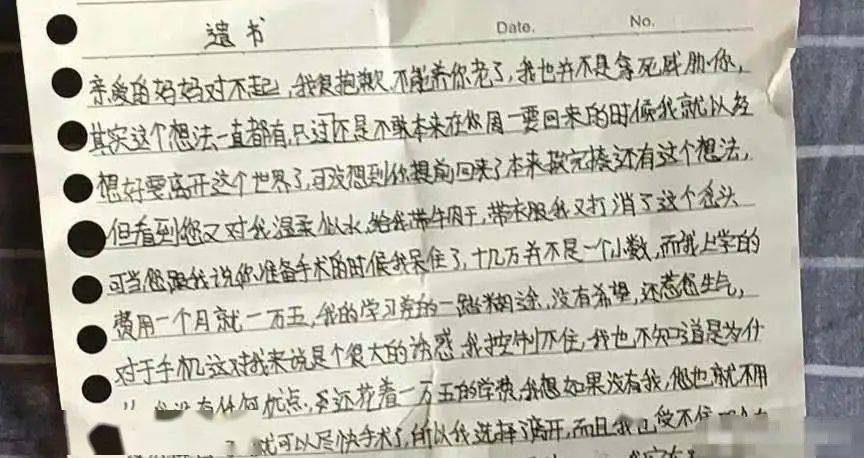 遗书 Date. No.
亲爱的妈妈对不起,我很抱歉,不能养你老了,我也并不是拿死威胁你,
其实这个想法一直都有,只过还是不敢本来在你周一要回来的时候我就以经
想好要离开这个世界了,可没想到你提前回来了本来挨完揍还有这个想法,
但看到您又对我温柔似水,给我带牛肉干,带衣服我又打消了这个念头
可当您跟我说你准备手术的时候我呆住了,十几万并不是一个小数,而我上学的
费用一个月就一万五,我的学习弄的一踏糊涂,没有希望,还惹您生气,
对于手机这对我来说是个很大的诱惑,我控制不住,我也不知道是为什
我没有任何优点,还花着一万五的学费,我想如果没有我,您也就不用
就可以尽快手术了,所以我选择了离开,而且我已受不住